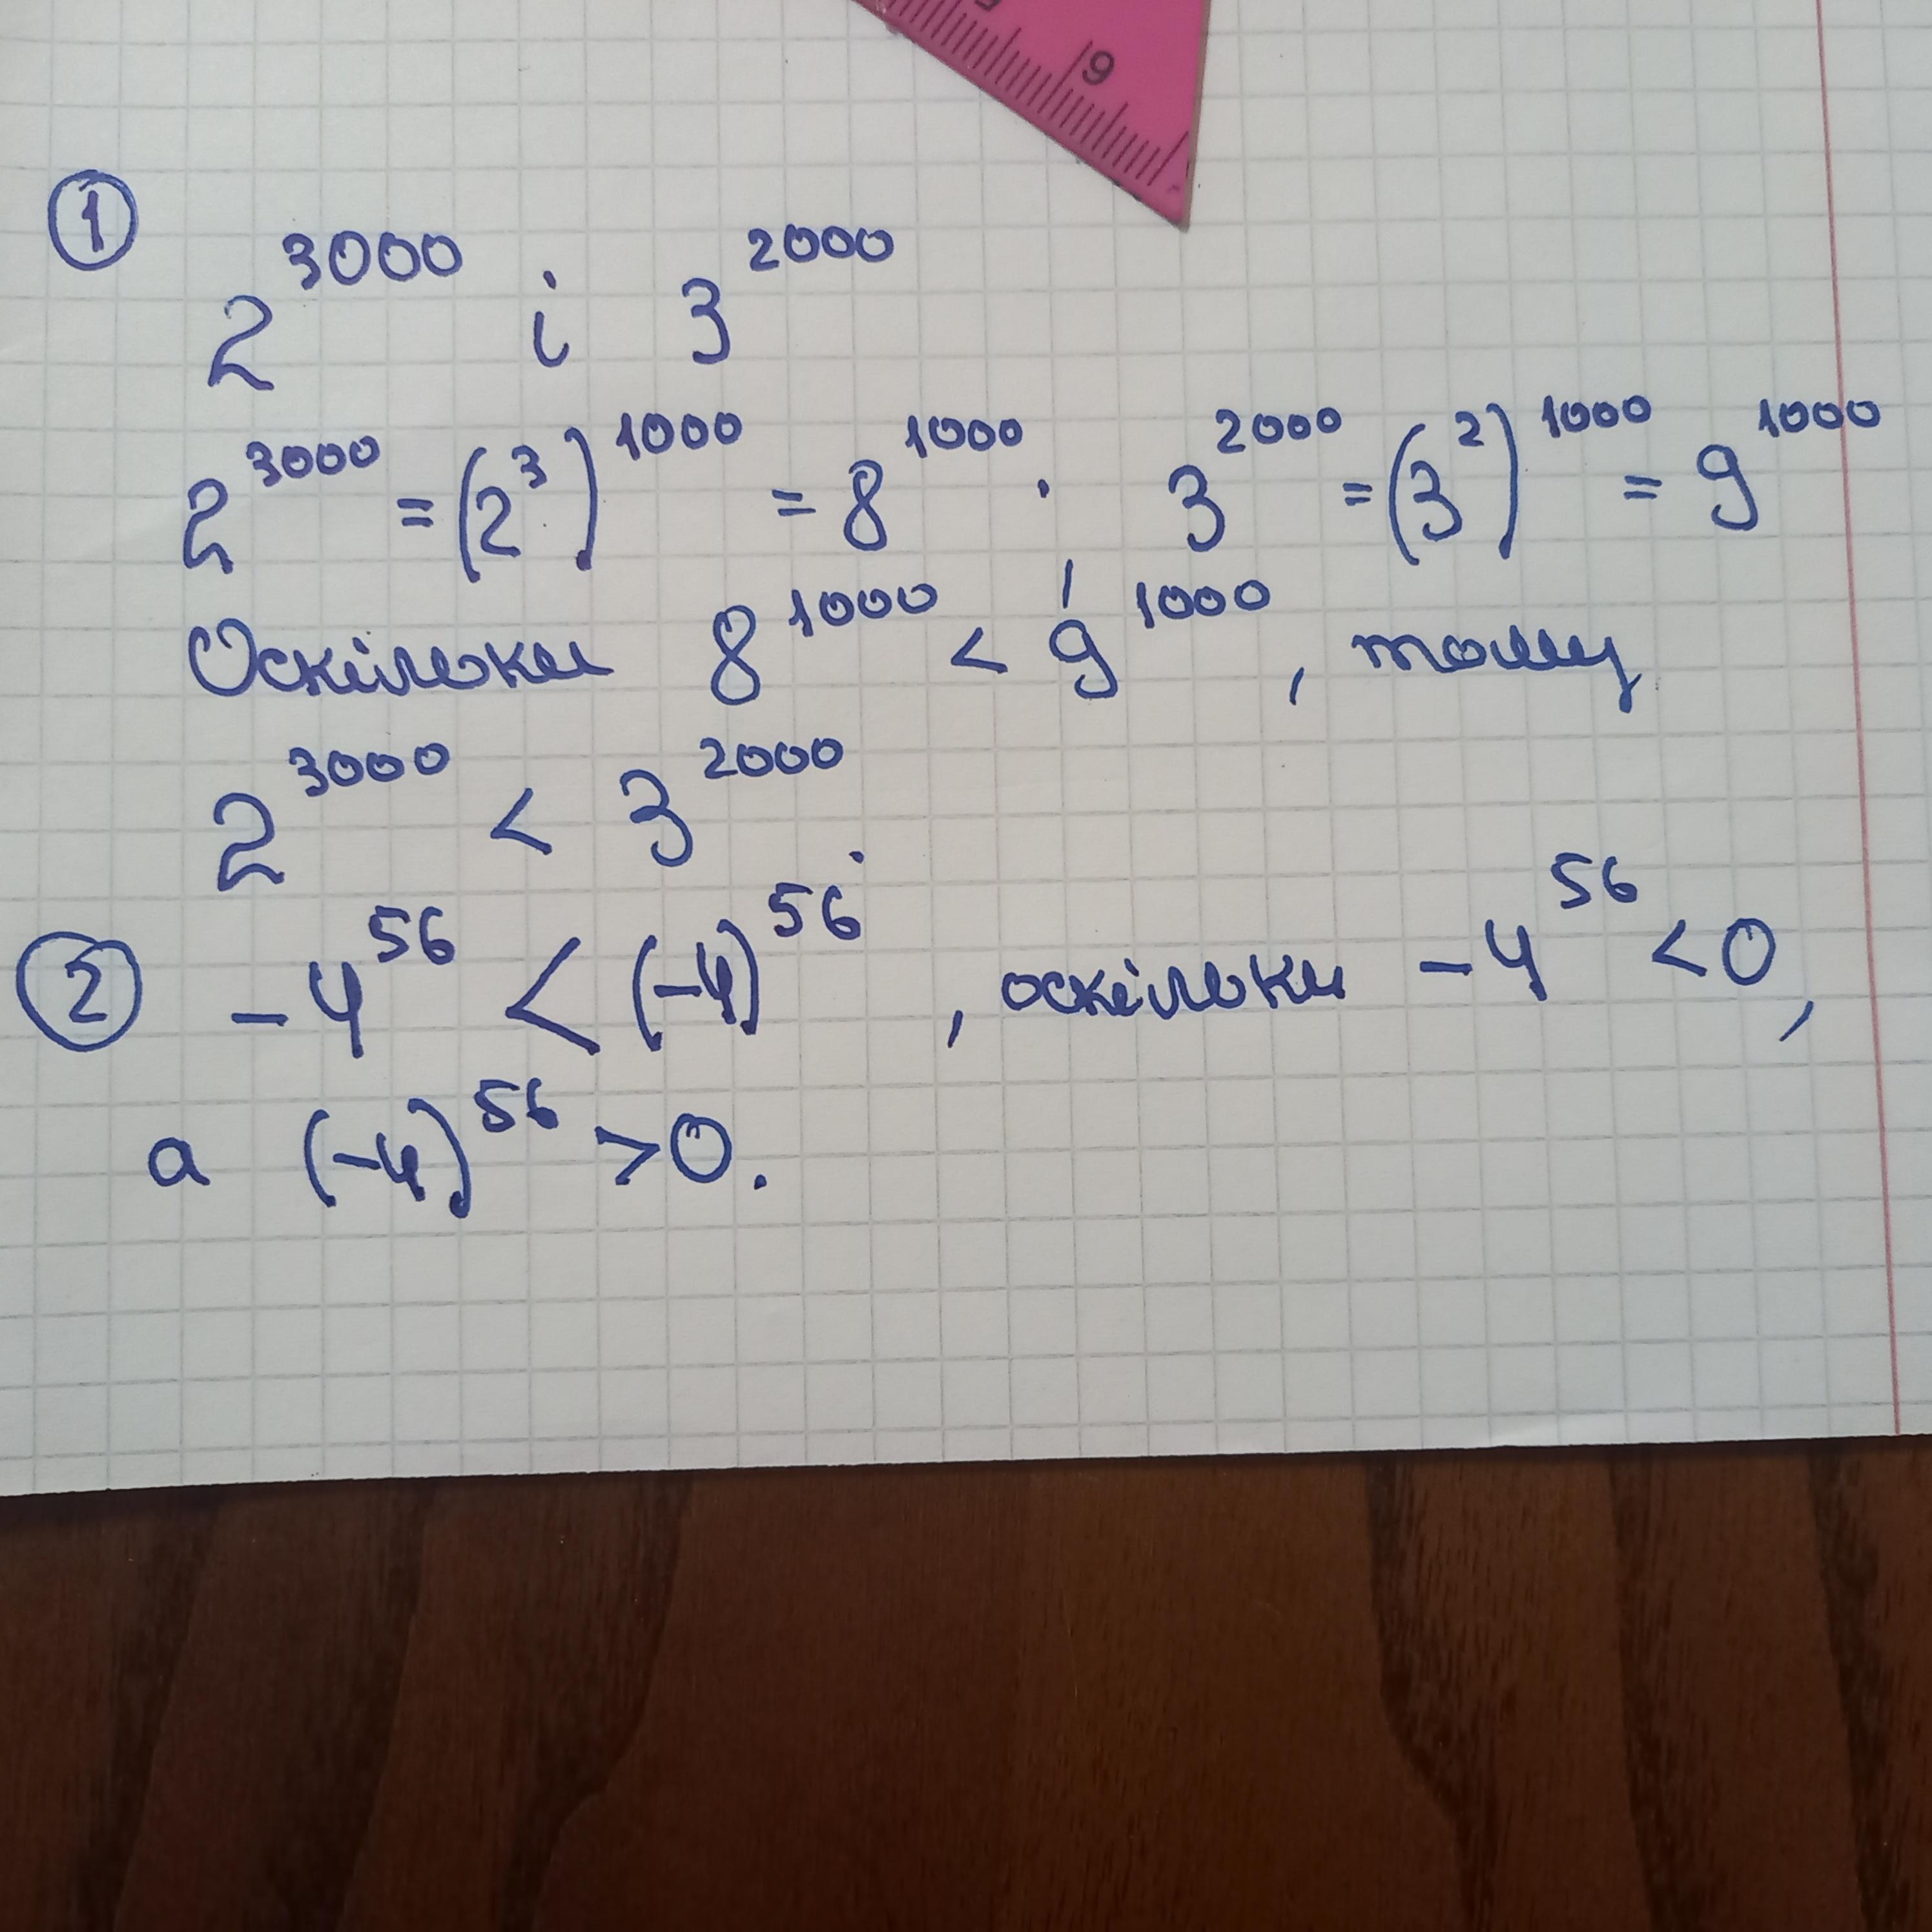 9
① 2^3000 і 3^2000
2^3000 = (2^3)^1000 = 8^1000; 3^2000 = (3^2)^1000 = 9^1000
Оскільки 8^1000 < 9^1000, тому
2^3000 < 3^2000.
② -4^56 < (-4)^56, оскільки -4^56 < 0,
а (-4)^56 > 0.